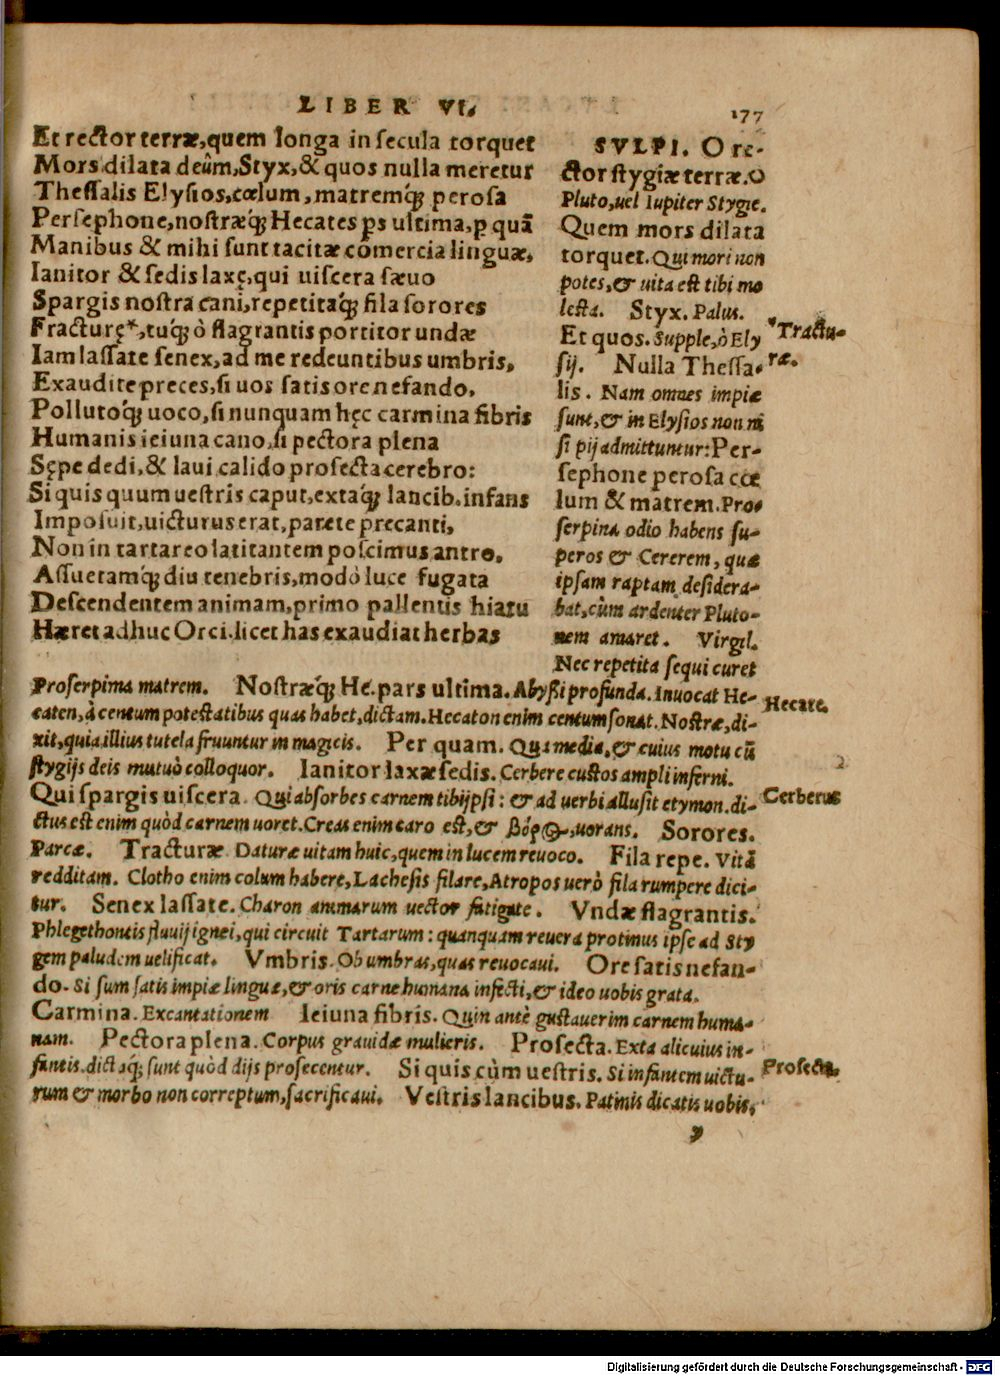 LIBER VI. 177
Et rector terræ, quem longa in secula torquet
Mors dilata deûm, Styx, & quos nulla meretur
Thessalis Elysios, cœlum, matremq́ꝫ perosa
Persephone, nostræq́ꝫ Hecates ps ultima, p quā
Manibus & mihi sunt tacitæ cōmercia linguæ,
Ianitor & sedis laxę, qui uiscera sæuo
Spargis nostra cani, repetitaq́ꝫ fila sorores
Fracturę*, tuq́ꝫ ò flagrantis portitor undæ
Iam lassate senex, ad me redeuntibus umbris,
Exaudite preces, si uos satis ore nefando,
Pollutoq́ꝫ uoco, si nunquam hęc carmina fibris
Humanis ieiuna cano, si pectora plena
Sępe dedi, & laui calido prosecta cerebro:
Si quis quum uestris caput, extaq́ꝫ lancib. infans
Imposuit, uicturus erat, parete precanti,
Non in tartareo latitantem poscimus antro,
Assuetamq́ꝫ diu tenebris, modò luce fugata
Descendentem animam, primo pallentis hiatu
Hæret adhuc Orci. licet has exaudiat herbas
SVLPI. O re-
ctor stygiæ terræ. O
Pluto, uel Iupiter Stygie.
Quem mors dilata
torquet. Qui mori non
potes, & uita est tibi mo
lesta. Styx. Palus.
Et quos. Supple, ò Ely
sij. Nulla Thessa-
lis. Nam omnes impiæ
sunt, & in Elysios non ni
si pij admittuntur: Per-
sephone perosa cœ
lum & matrem. Pro-
serpina odio habens su-
peros & Cererem, quæ
ipsam raptam desidera-
bat, cùm ardenter Pluto-
nem amaret. Virgil.
Nec repetita sequi curet
* Tractu-
ræ.
Proserpina matrem. Nostræq́ꝫ He. pars ultima. Abyssi profunda. Inuocat He-
caten, à centum potestatibus quas habet, dictam. Hecaton enim centum sonat. Nostræ, di-
xit, quia illius tutela fruuntur in magicis. Per quam. Qua media, & cuius motu cū
stygijs deis mutuò colloquor. Ianitor laxæ sedis. Cerbere custos ampli inferni.
Qui spargis uiscera. Qui absorbes carnem tibi ipsi: & ad uerbi allusit etymon. di-
ctus est enim quòd carnem uoret. Creas enim caro est, & βόρος, uorans. Sorores.
Parcæ. Tracturæ Daturæ uitam huic, quem in lucem reuoco. Fila repe. Vitā
redditam. Clotho enim colum habere, Lachesis filare, Atropos uerò fila rumpere dici-
tur. Senex lassate. Charon animarum uector fatigate. Vndæ flagrantis.
Phlegethontis fluuij ignei, qui circuit Tartarum: quanquam reuera protinus ipse ad Sty
gem paludem uelificat. Vmbris. Ob umbras, quas reuocaui. Ore satis nefan-
do. Si sum satis impiæ linguæ, & oris carne humana infecti, & ideo uobis grata.
Carmina. Excantationem Ieiuna fibris. Quin antè gustauerim carnem huma-
nam. Pectora plena. Corpus grauidæ mulieris. Prosecta. Exta alicuius in-
fantis. dictaq́ꝫ sunt quòd dijs prosecentur. Si quis cùm uestris. Si infantem uictu-
rum & morbo non correptum, sacrificaui. Vestris lancibus. Patinis dicatis uobis,
Hecate.
Cerberus
Prosecta.
y
Digitalisierung gefördert durch die Deutsche Forschungsgemeinschaft - DFG